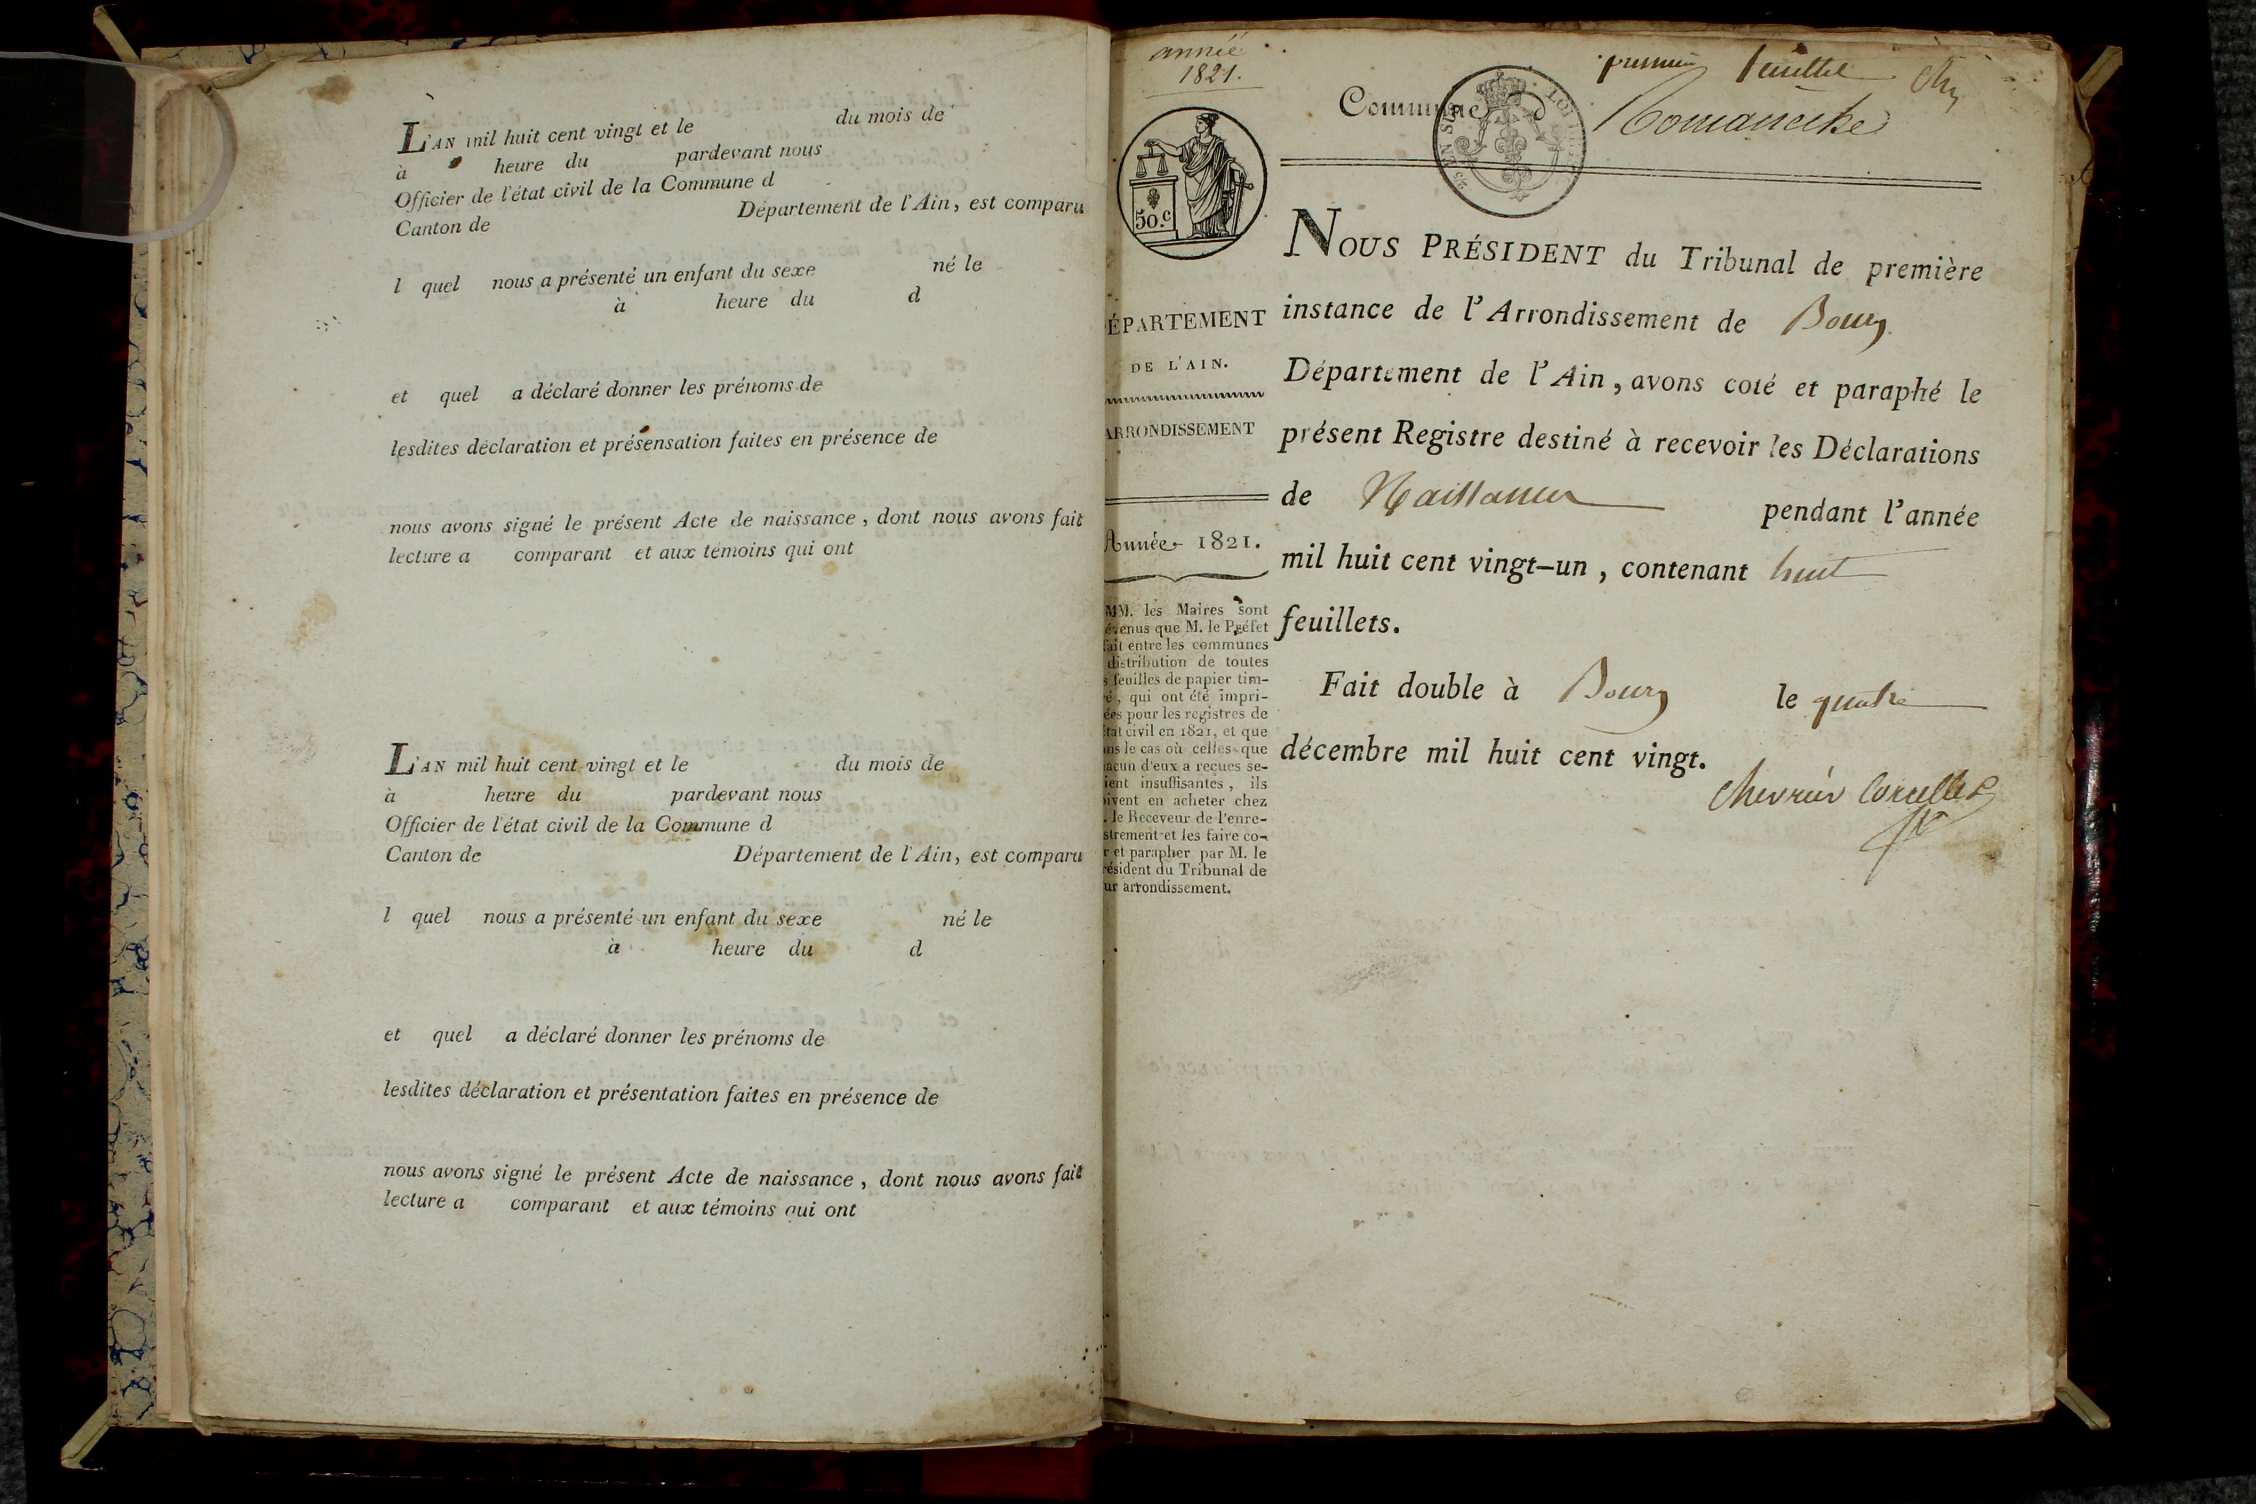 L'AN mil huit cent vingt et le du mois de
à heure du pardevant nous
Officier de l'état civil de la Commune d
Canton de Département de l'Ain, est comparu
l quel nous a présenté un enfant du sexe né le
à heure du d
et quel a déclaré donner les prénoms de
lesdites déclaration et présensation faites en présence de
nous avons signé le présent Acte de naissance, dont nous avons fait
lecture a comparant et aux témoins qui ont
L'AN mil huit cent vingt et le du mois de
à heure du pardevant nous
Officier de l'état civil de la Commune d
Canton de Département de l'Ain, est comparu
l quel nous a présenté un enfant du sexe né le
à heure du d
et quel a déclaré donner les prénoms de
lesdites déclaration et présentation faites en présence de
nous avons signé le présent Acte de naissance, dont nous avons fait
lecture a comparant et aux témoins qui ont
année
1821.
premier feuillet
Commune d Romaneche
50.c
ÉPARTEMENT
DE L'AIN.
ARRONDISSEMENT
Année 1821.
MM. les Maires sont
évenus que M. le Préfet
fait entre les communes
distribution de toutes
s feuilles de papier tim-
ré, qui ont été impri-
ées pour les registres de
état civil en 1821, et que
ans le cas où celles que
hacun d'eux a reçues se-
ient insuffisantes, ils
oivent en acheter chez
. le Receveur de l'enre-
strement et les faire co-
r et parapher par M. le
résident du Tribunal de
ur arrondissement.
NOUS PRÉSIDENT du Tribunal de première
instance de l'Arrondissement de Bourg
Département de l'Ain, avons coté et paraphé le
présent Registre destiné à recevoir les Déclarations
de Naissances pendant l'année
mil huit cent vingt-un, contenant huit
feuillets.
Fait double à Bourg le quatre
décembre mil huit cent vingt.
Chevrier Corcelles